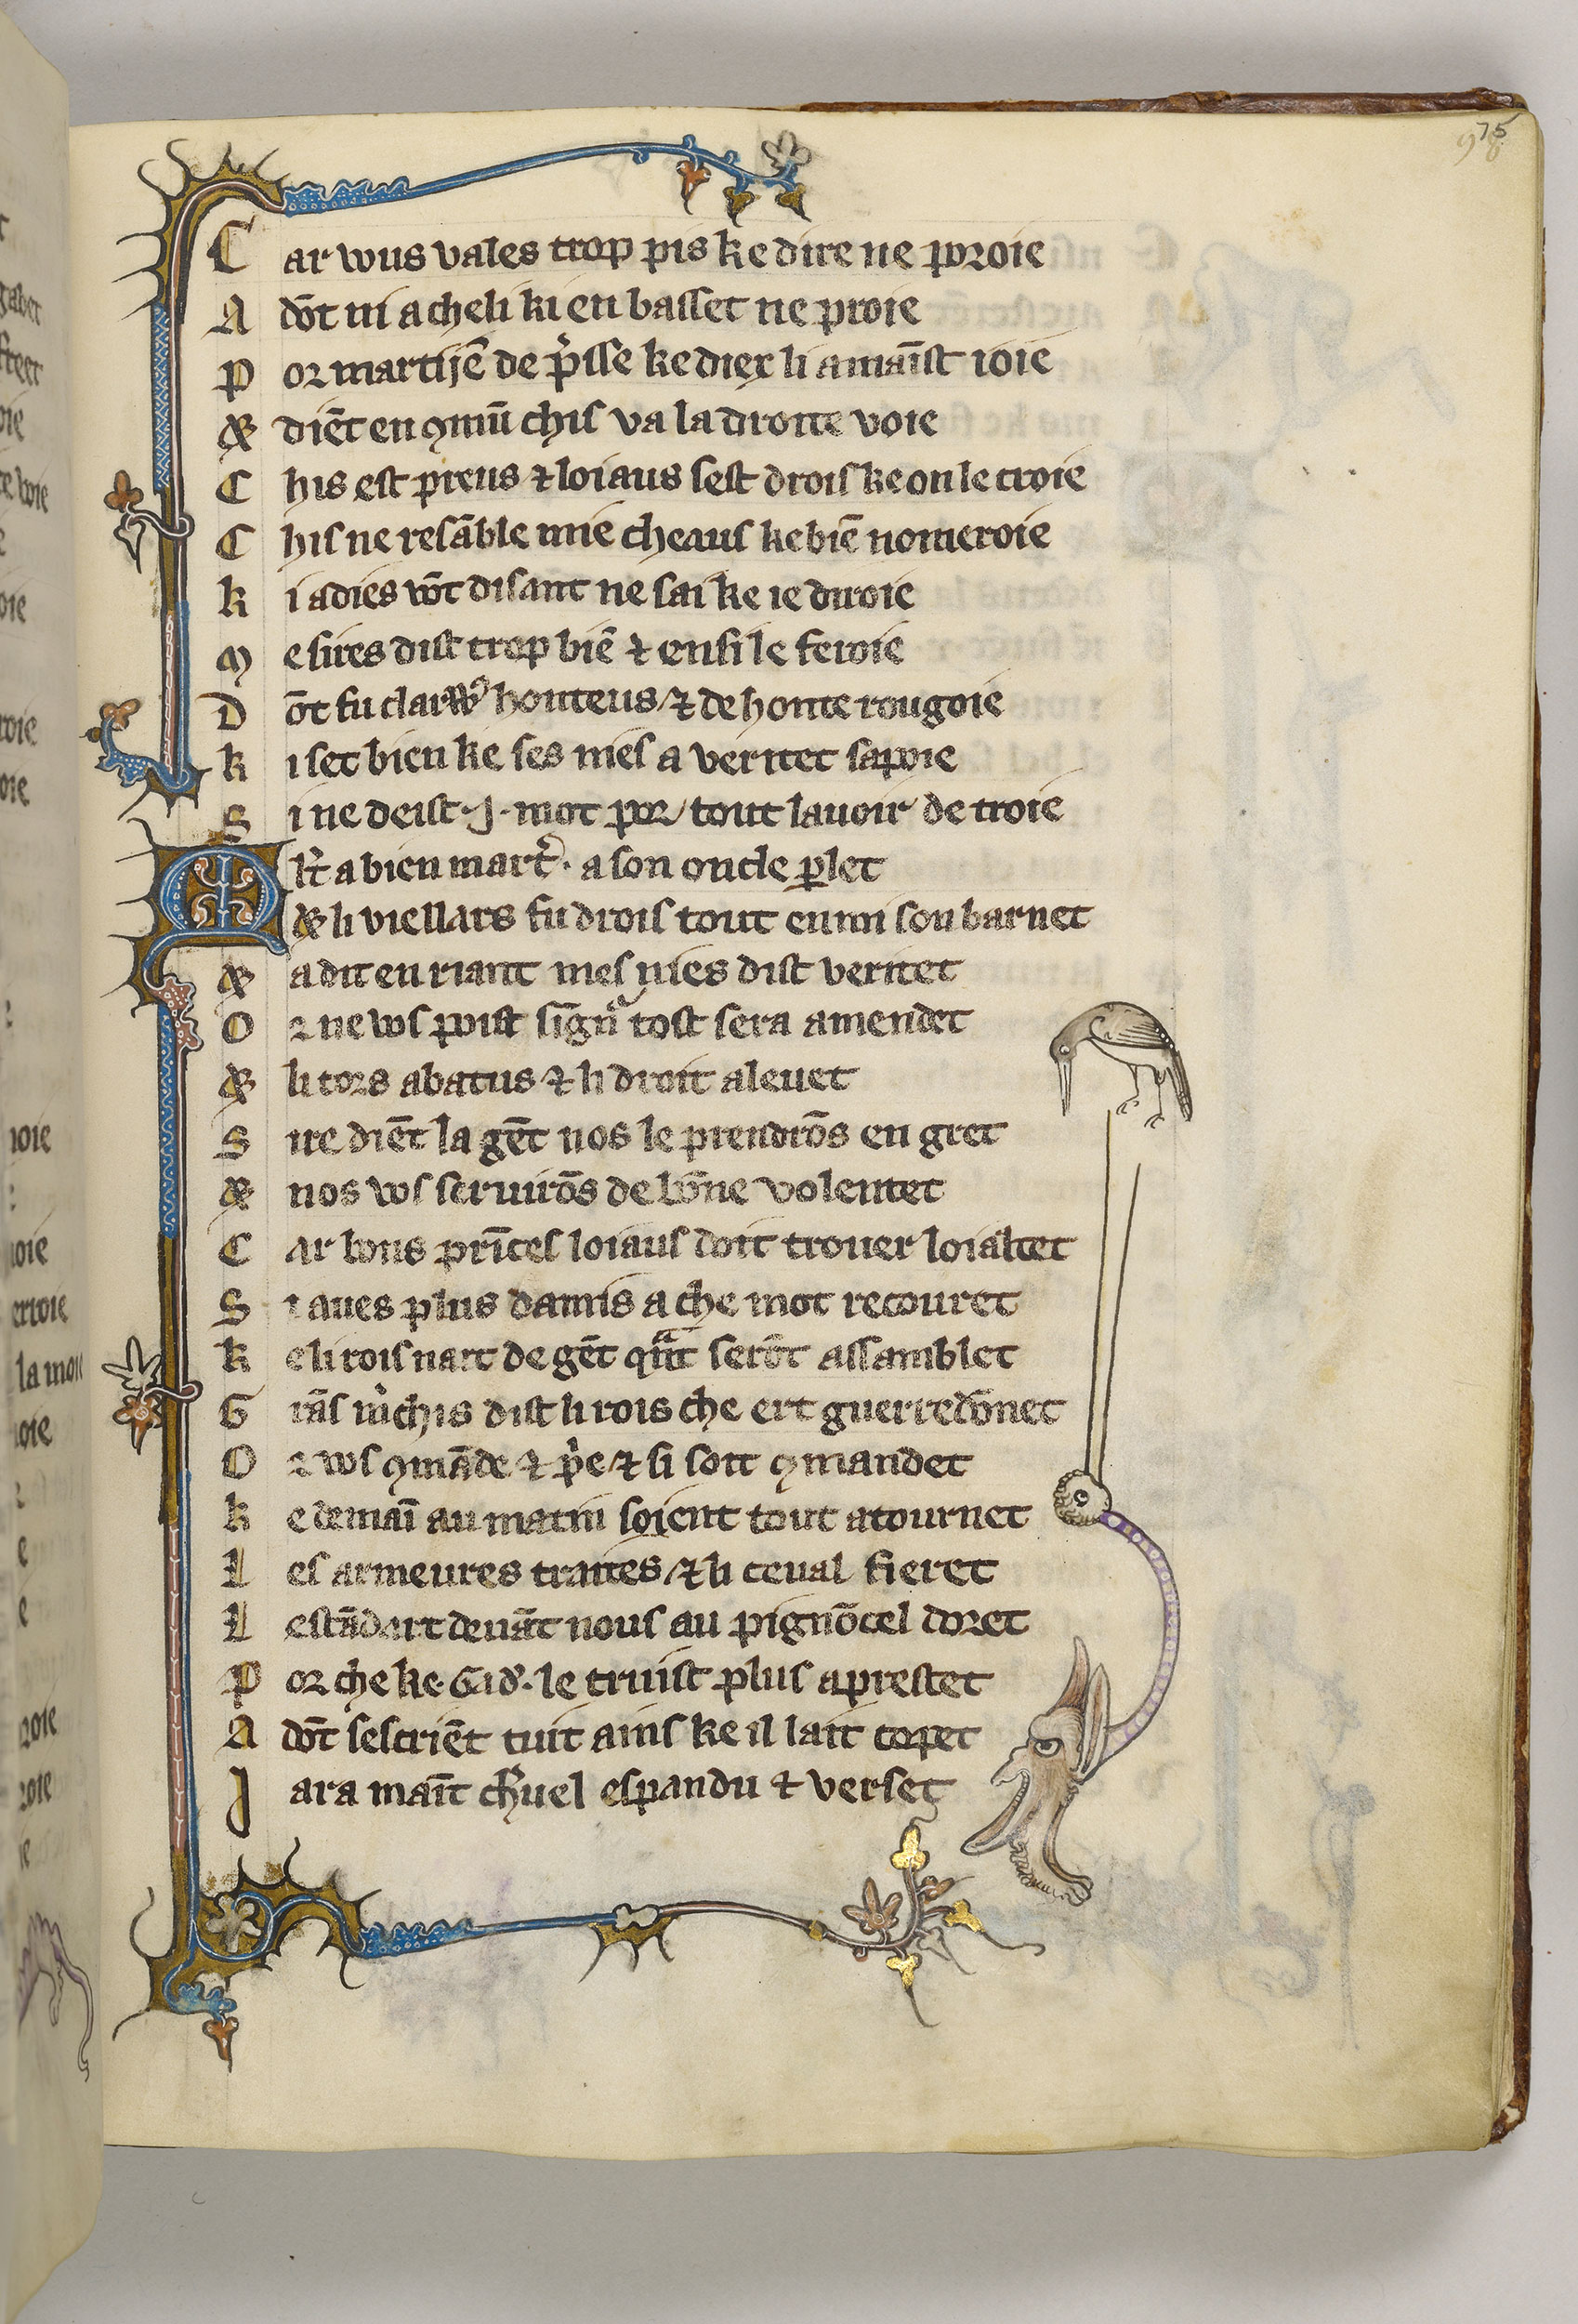 75
98
C ar wus vales trop pis ke dire ne poroie
A dōt ni a cheli ki en basset ne proie
P or martijē de ꝑsse ke diex li amāist ioie
⁊ diēt en ꝯmū chis va la droite voie
C his est preus ⁊ loiaus sest drois ke on le croie
C his ne resāble mie cheaus ke biē nomeroie
K i adies vōt disant ne sai ke ie diroie
M e sires dist trop biē ⁊ ensi le feroie
D ōt fu clarꝰ honteus ⁊ de honte rougoie
K i set bien ke ses mes a veritet sapoie
S i ne deist ·J· mot por tout lauoir de troie
M lt̄ a bien mart̄· a son oncle ꝑlet
⁊ li viellars fu drois tout enmi son barnet
⁊ a dit en riant mes nies dist veritet
O r ne ws poist sign̄ tost sera amendet
⁊ li tors abatus ⁊ li droit aleuet
S ire diēt la gēt nos le prendrōs en gret
⁊ nos ws seruirōs de bōne volentet
C ar bons prīces loiaus doit trouer loialtet
S i aues plus damis a che mot recouret
K e li rois nart de gēt qāt serōt assamblet
G rās m̄chis dist li rois che ert guerredōnet
O r ws ꝯmāde ⁊ p̄e ⁊ si soit ꝯmandet
K e demaī au matin soient tout atournet
L es armeures traites ⁊ li ceual fieret
L estādart deuāt nous au pignōcel doret
P or che ke· Gad̄· le truist plus aprestet
A dōt sescriēt tuit ains ke il lait copet
J ara maīt ch̄uel espandu ⁊ verset